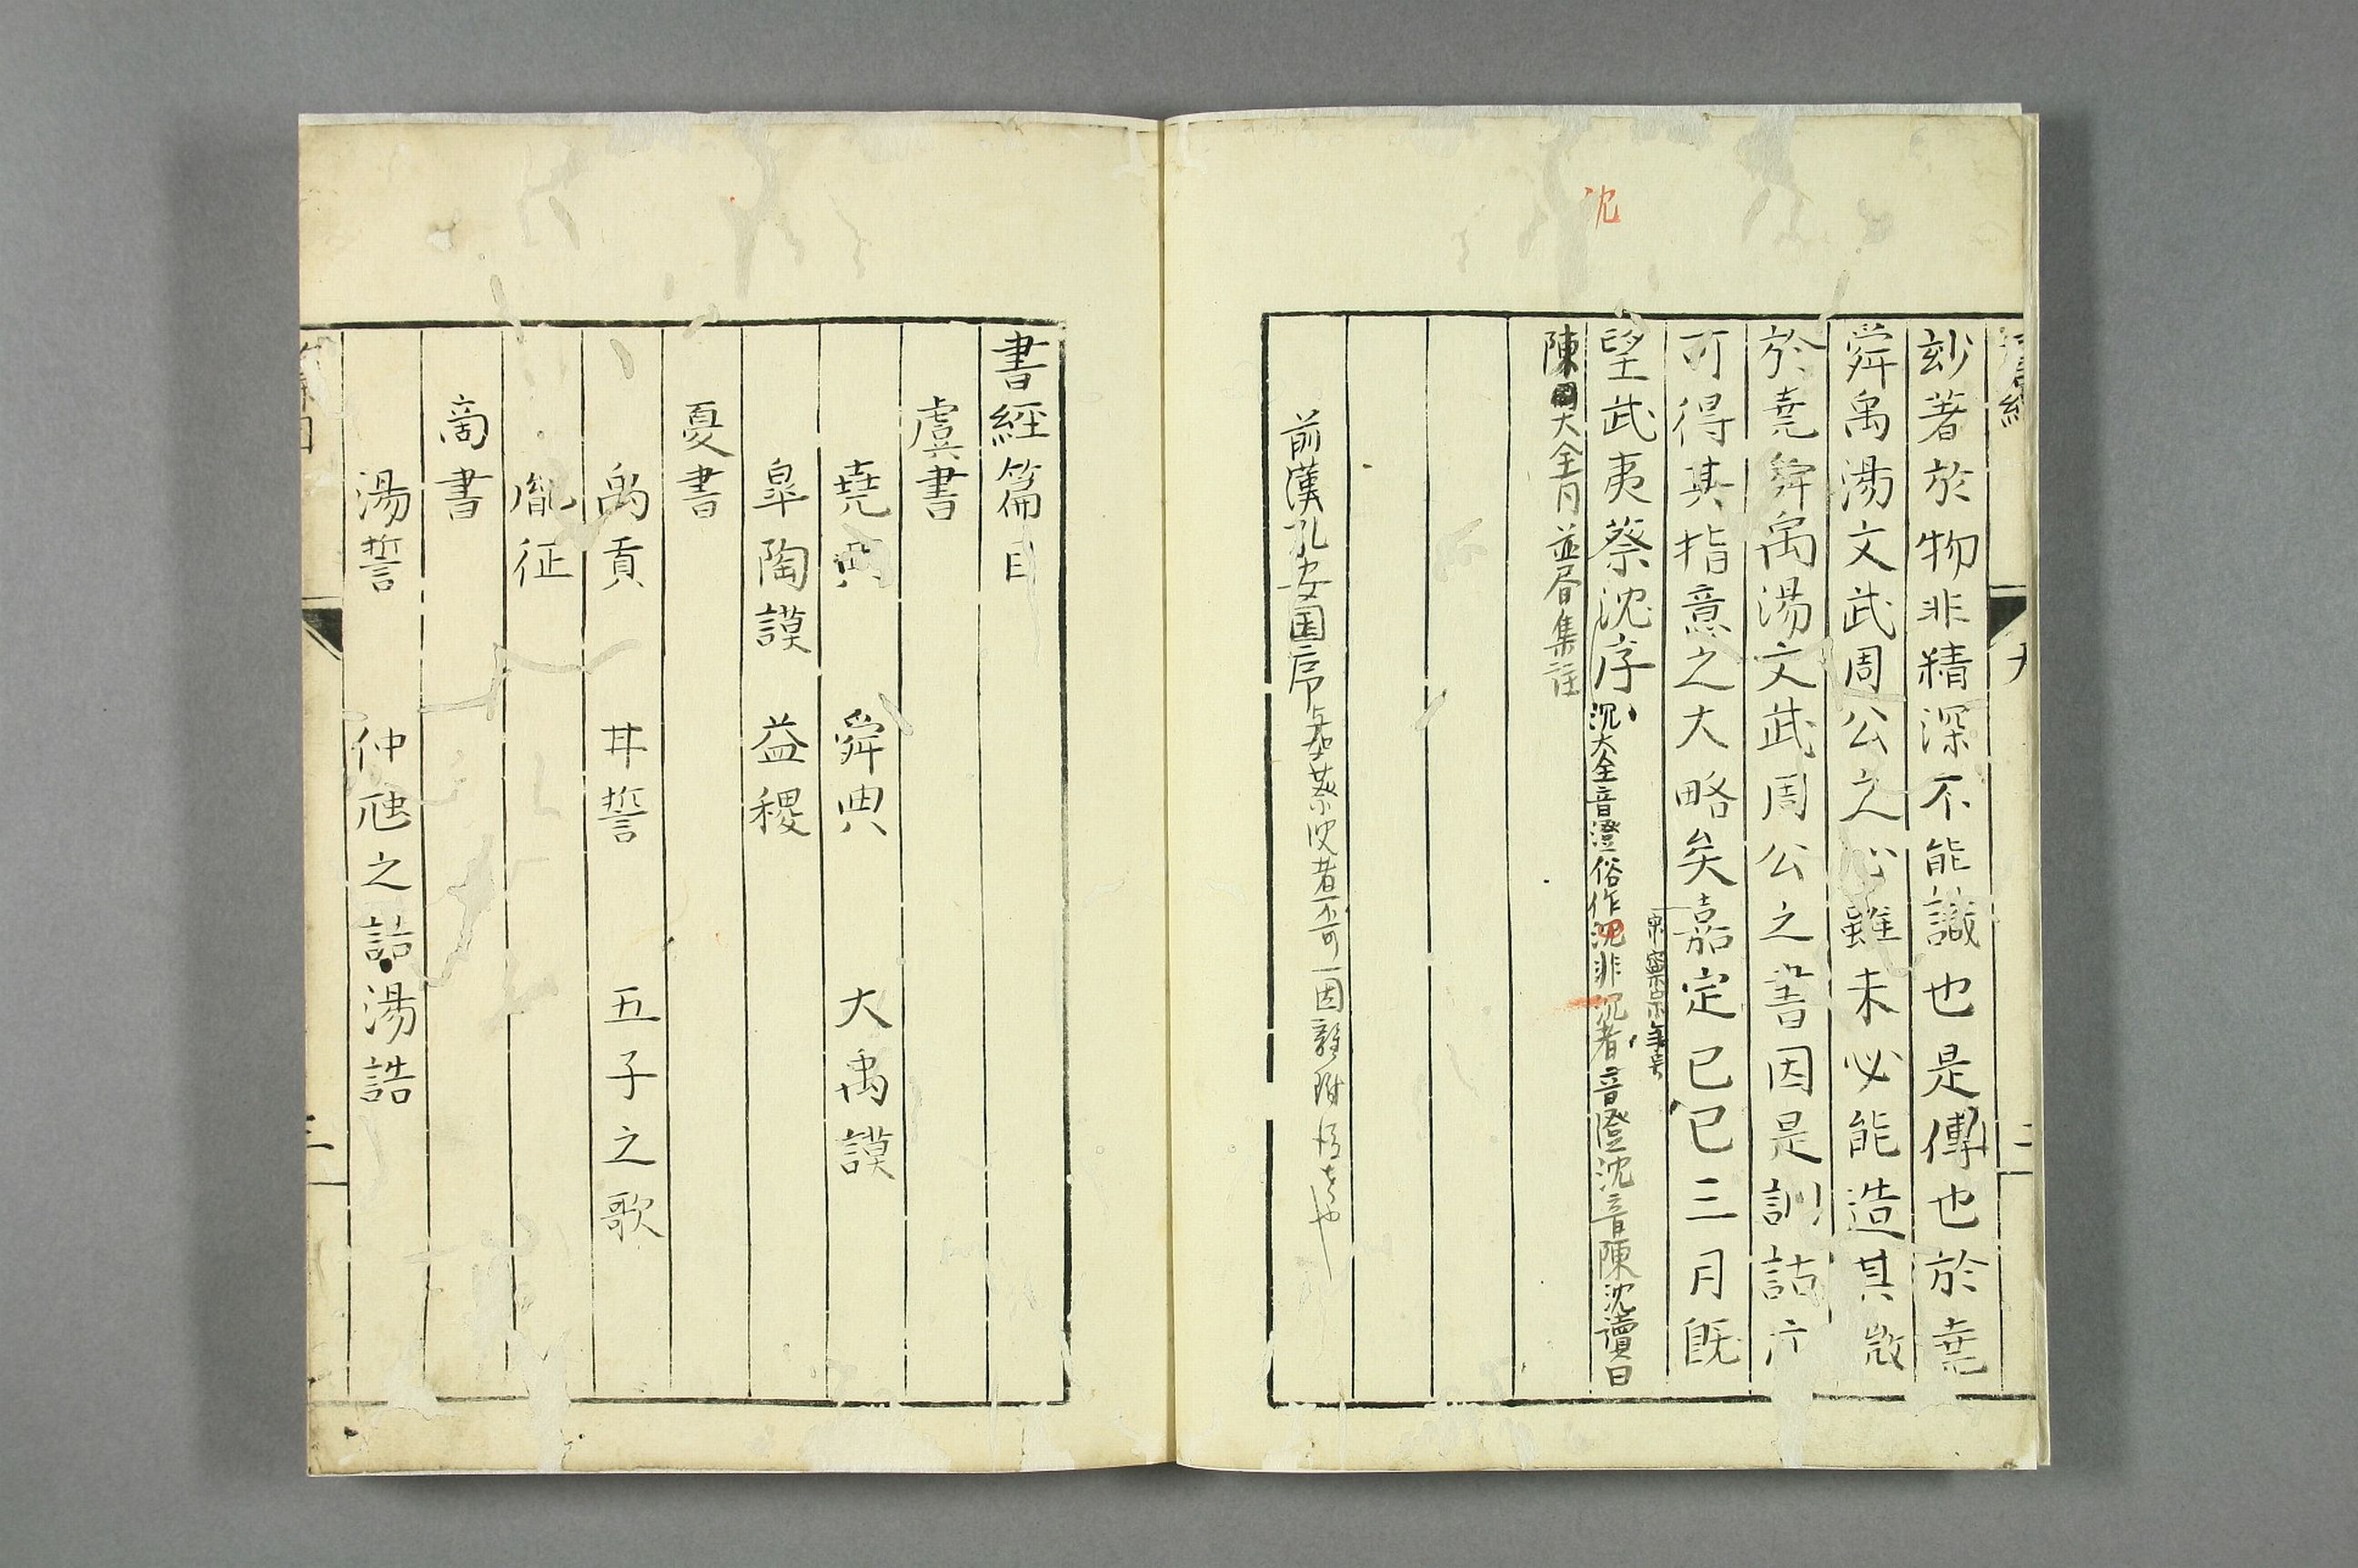 沈
玅著於物非精深不能識也是傳也於堯
舜禹湯文武周公之心雖未必能造其微
於堯舜禹湯文武周公之書因是訓詁亦
可得其指意之大略矣嘉定己巳三月既
宋寧宗年号
望武夷蔡沈序
沉大全音澄俗作沈非沉者音澄沈音陳沈讀曰
陳大全月並昬集註
前漢孔安国序
書經篇目
虞書
堯典 舜典 大禹謨
皐陶謨 益稷
夏書
禹貢 甘誓 五子之歌
胤征
商書
湯誓 仲虺之誥 湯誥
三